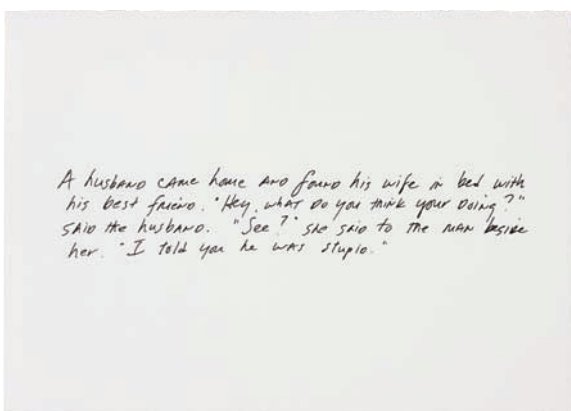 A husband came home and found his wife in bed with
his best friend. "Hey, what do you think your doing?"
said the husband. "See?" she said to the man beside
her. "I told you he was stupid."